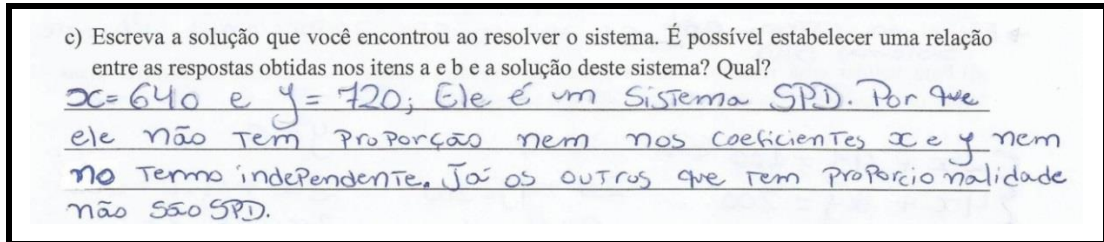 c) Escreva a solução que você encontrou ao resolver o sistema. É possível estabelecer uma relação
entre as respostas obtidas nos itens a e b e a solução deste sistema? Qual?
x= 640 e y = 720; Ele é um Sistema SPD. Por que
ele não tem proporção nem nos coeficientes x e y nem
no termo independente. Já os outros que tem proporcionalidade
não são SPD.